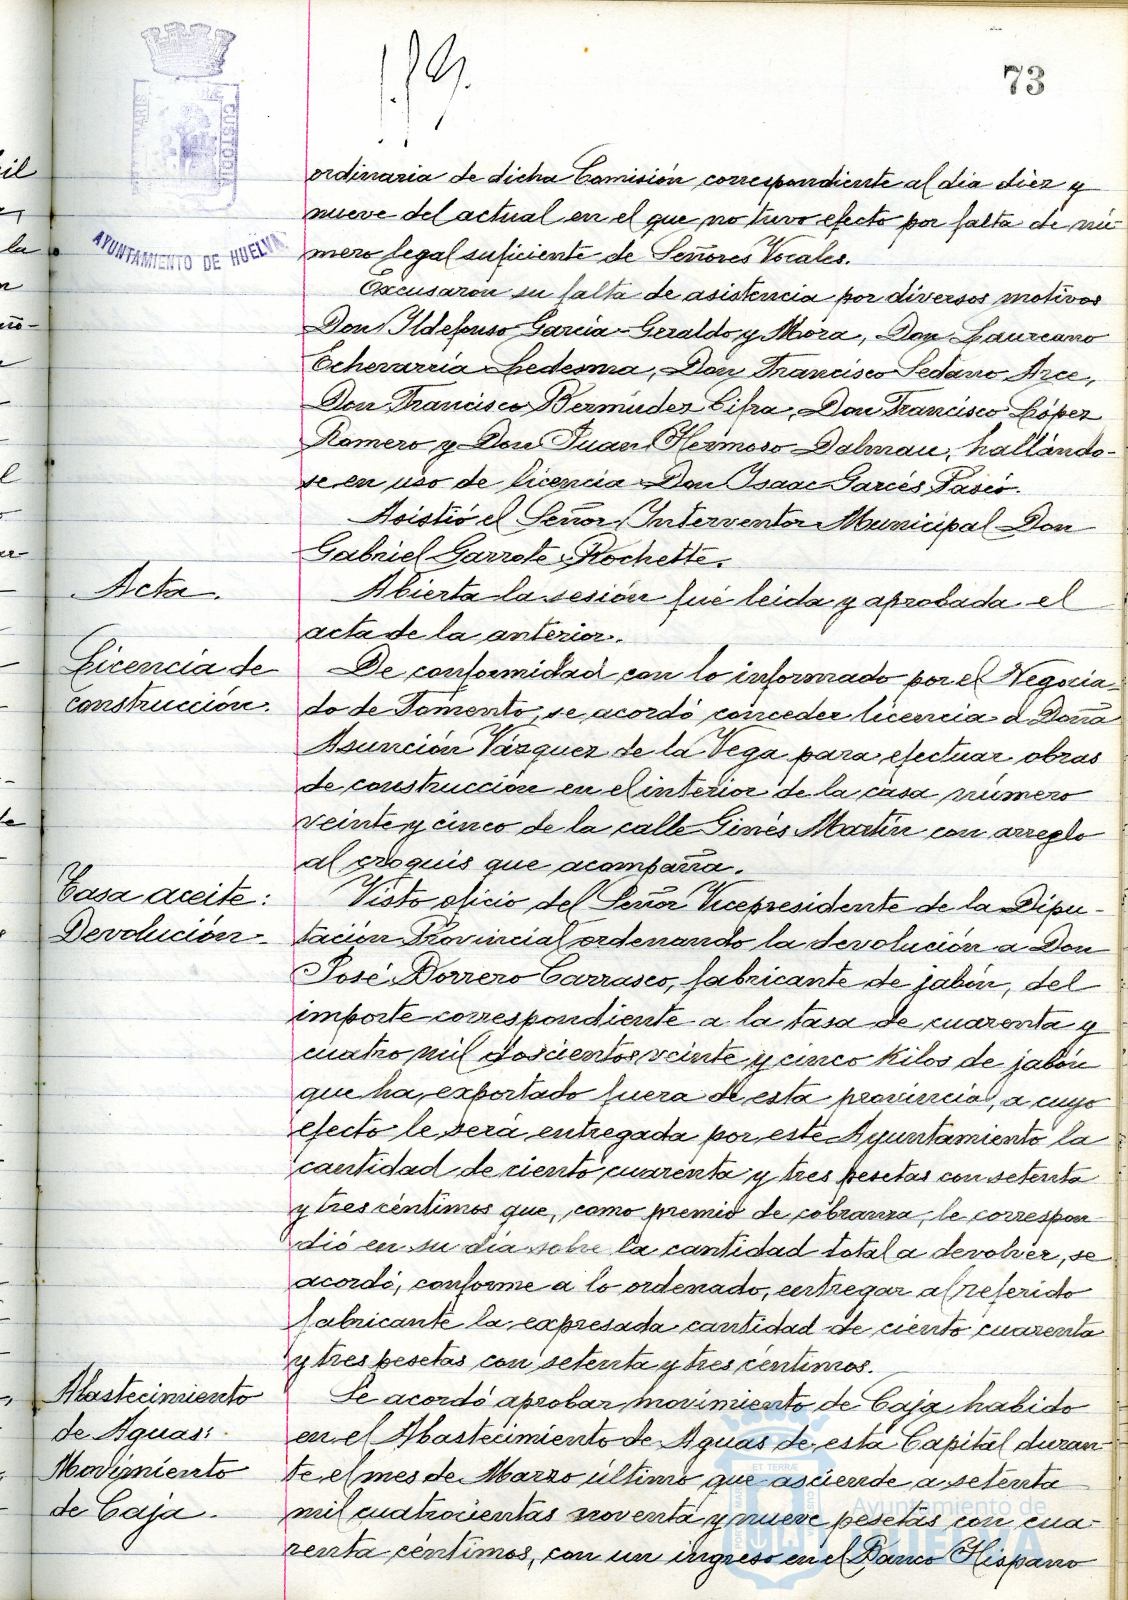 73
AYUNTAMIENTO DE HUELVA
ordinaria de dicha Comisión correspondiente al dia diez y
nueve del actual en el que no tuvo efecto por falta de nú-
mero legal suficiente de Señores Vocales.
Excusarón su falta de asistencia por diversos motivos
Don Ildefonso García-Geraldo y Mora, Don Laureano
Echevarría Ledesma, Don Francisco Sedano Arce,
Don Francisco Bermúdez Cifra, Don Francisco López
Romero y Don Juan Hermoso Dalmau, hallándo-
se en uso de licencia Don Isaac Garcés Pasió.
Asistió el Señor Interventor Municipal Don
Gabriel Garrote Rochette.
Acta.
Abierta la sesión fué leida y aprobada el
acta de la anterior.
Licencia de
construcción.
De conformidad con lo informado por el Negocia-
do de Fomento, se acordó conceder licencia a Doña
Asunción Vázquez de la Vega para efectuar obras
de construcción en el interior de la casa número
veinte y cinco de la calle Ginés Martín con arreglo
al croquis que acompaña.
Tasa aceite:
Devolución.
Visto oficio del Señor Vicepresidente de la Dipu-
tación Provincial ordenando la devolución a Don
José Borrero Carrasco, fabricante de jabón, del
importe correspondiente a la tasa de cuarenta y
cuatro mil doscientos veinte y cinco kilos de jabón
que ha exportado fuera de esta provincia, a cuyo
efecto le será entregada por este Ayuntamiento la
cantidad de ciento cuarenta y tres pesetas con setenta
y tres céntimos que, como premio de cobranza, le correspon
dió en su día sobre la cantidad total a devolver, se
acordó, conforme a lo ordenado, entregar al referido
fabricante la expresada cantidad de ciento cuarenta
y tres pesetas con setenta y tres céntimos.
Abastecimiento
de Aguas:
Movimiento
de Caja.
Se acordó aprobar movimiento de Caja habido
en el Abastecimiento de Aguas de esta Capital duran-
te el mes de Marzo último que asciende a setenta
mil cuatrocientas noventa y nueve pesetas con cua-
renta céntimos, con un ingreso en el Banco Hispano
Ayuntamiento de
HUELVA